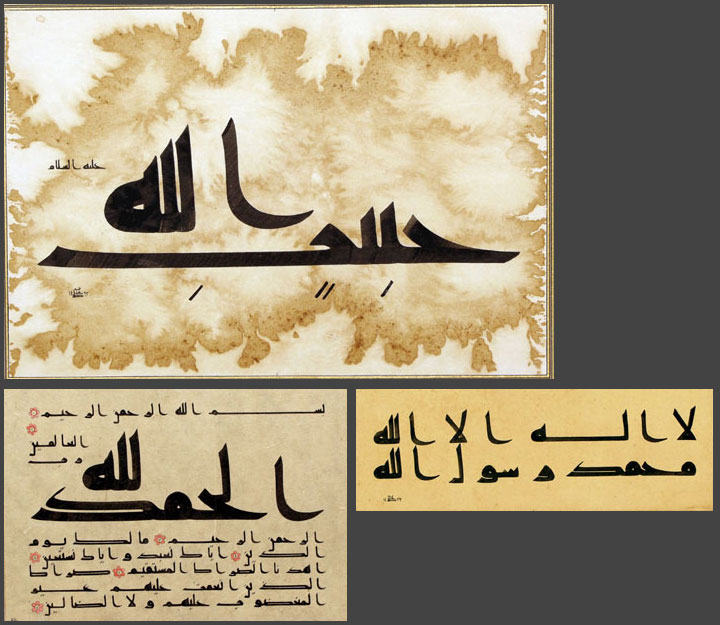 حبيب الله
عليه السلام
لا اله الا الله
محمد رسول الله
بسم الله الرحمن الرحيم
الحمد لله
رب
العالمين
الرحمن الرحيم مالك يوم
الدين اياك نعبد و اياك نستعين
اهدنا الصراط المستقيم صراط
الذين انعمت عليهم غير
المغضوب عليهم و لا الضالين